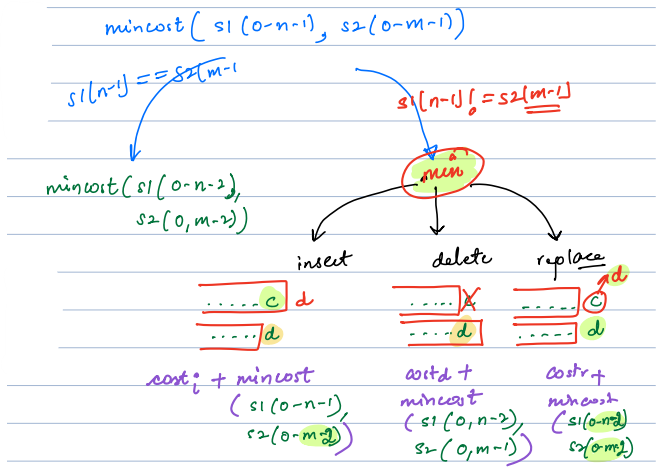 mincost( s1(0-n-1), s2(0-m-1))
s1[n-1] == s2[m-1
s1[n-1] != s2[m-1]
min
mincost(s1(0-n-2),
s2(0,m-2))
insert delete replace
d
.....c d ....c ..... c
.....d ....d ..... d
costi + mincost
(s1(0-n-1),
s2(0-m-2))
costd +
mincost
(s1(0,n-2),
s2(0,m-1))
costr +
mincost
(s1(0-n-2)
s2(0-m-2)